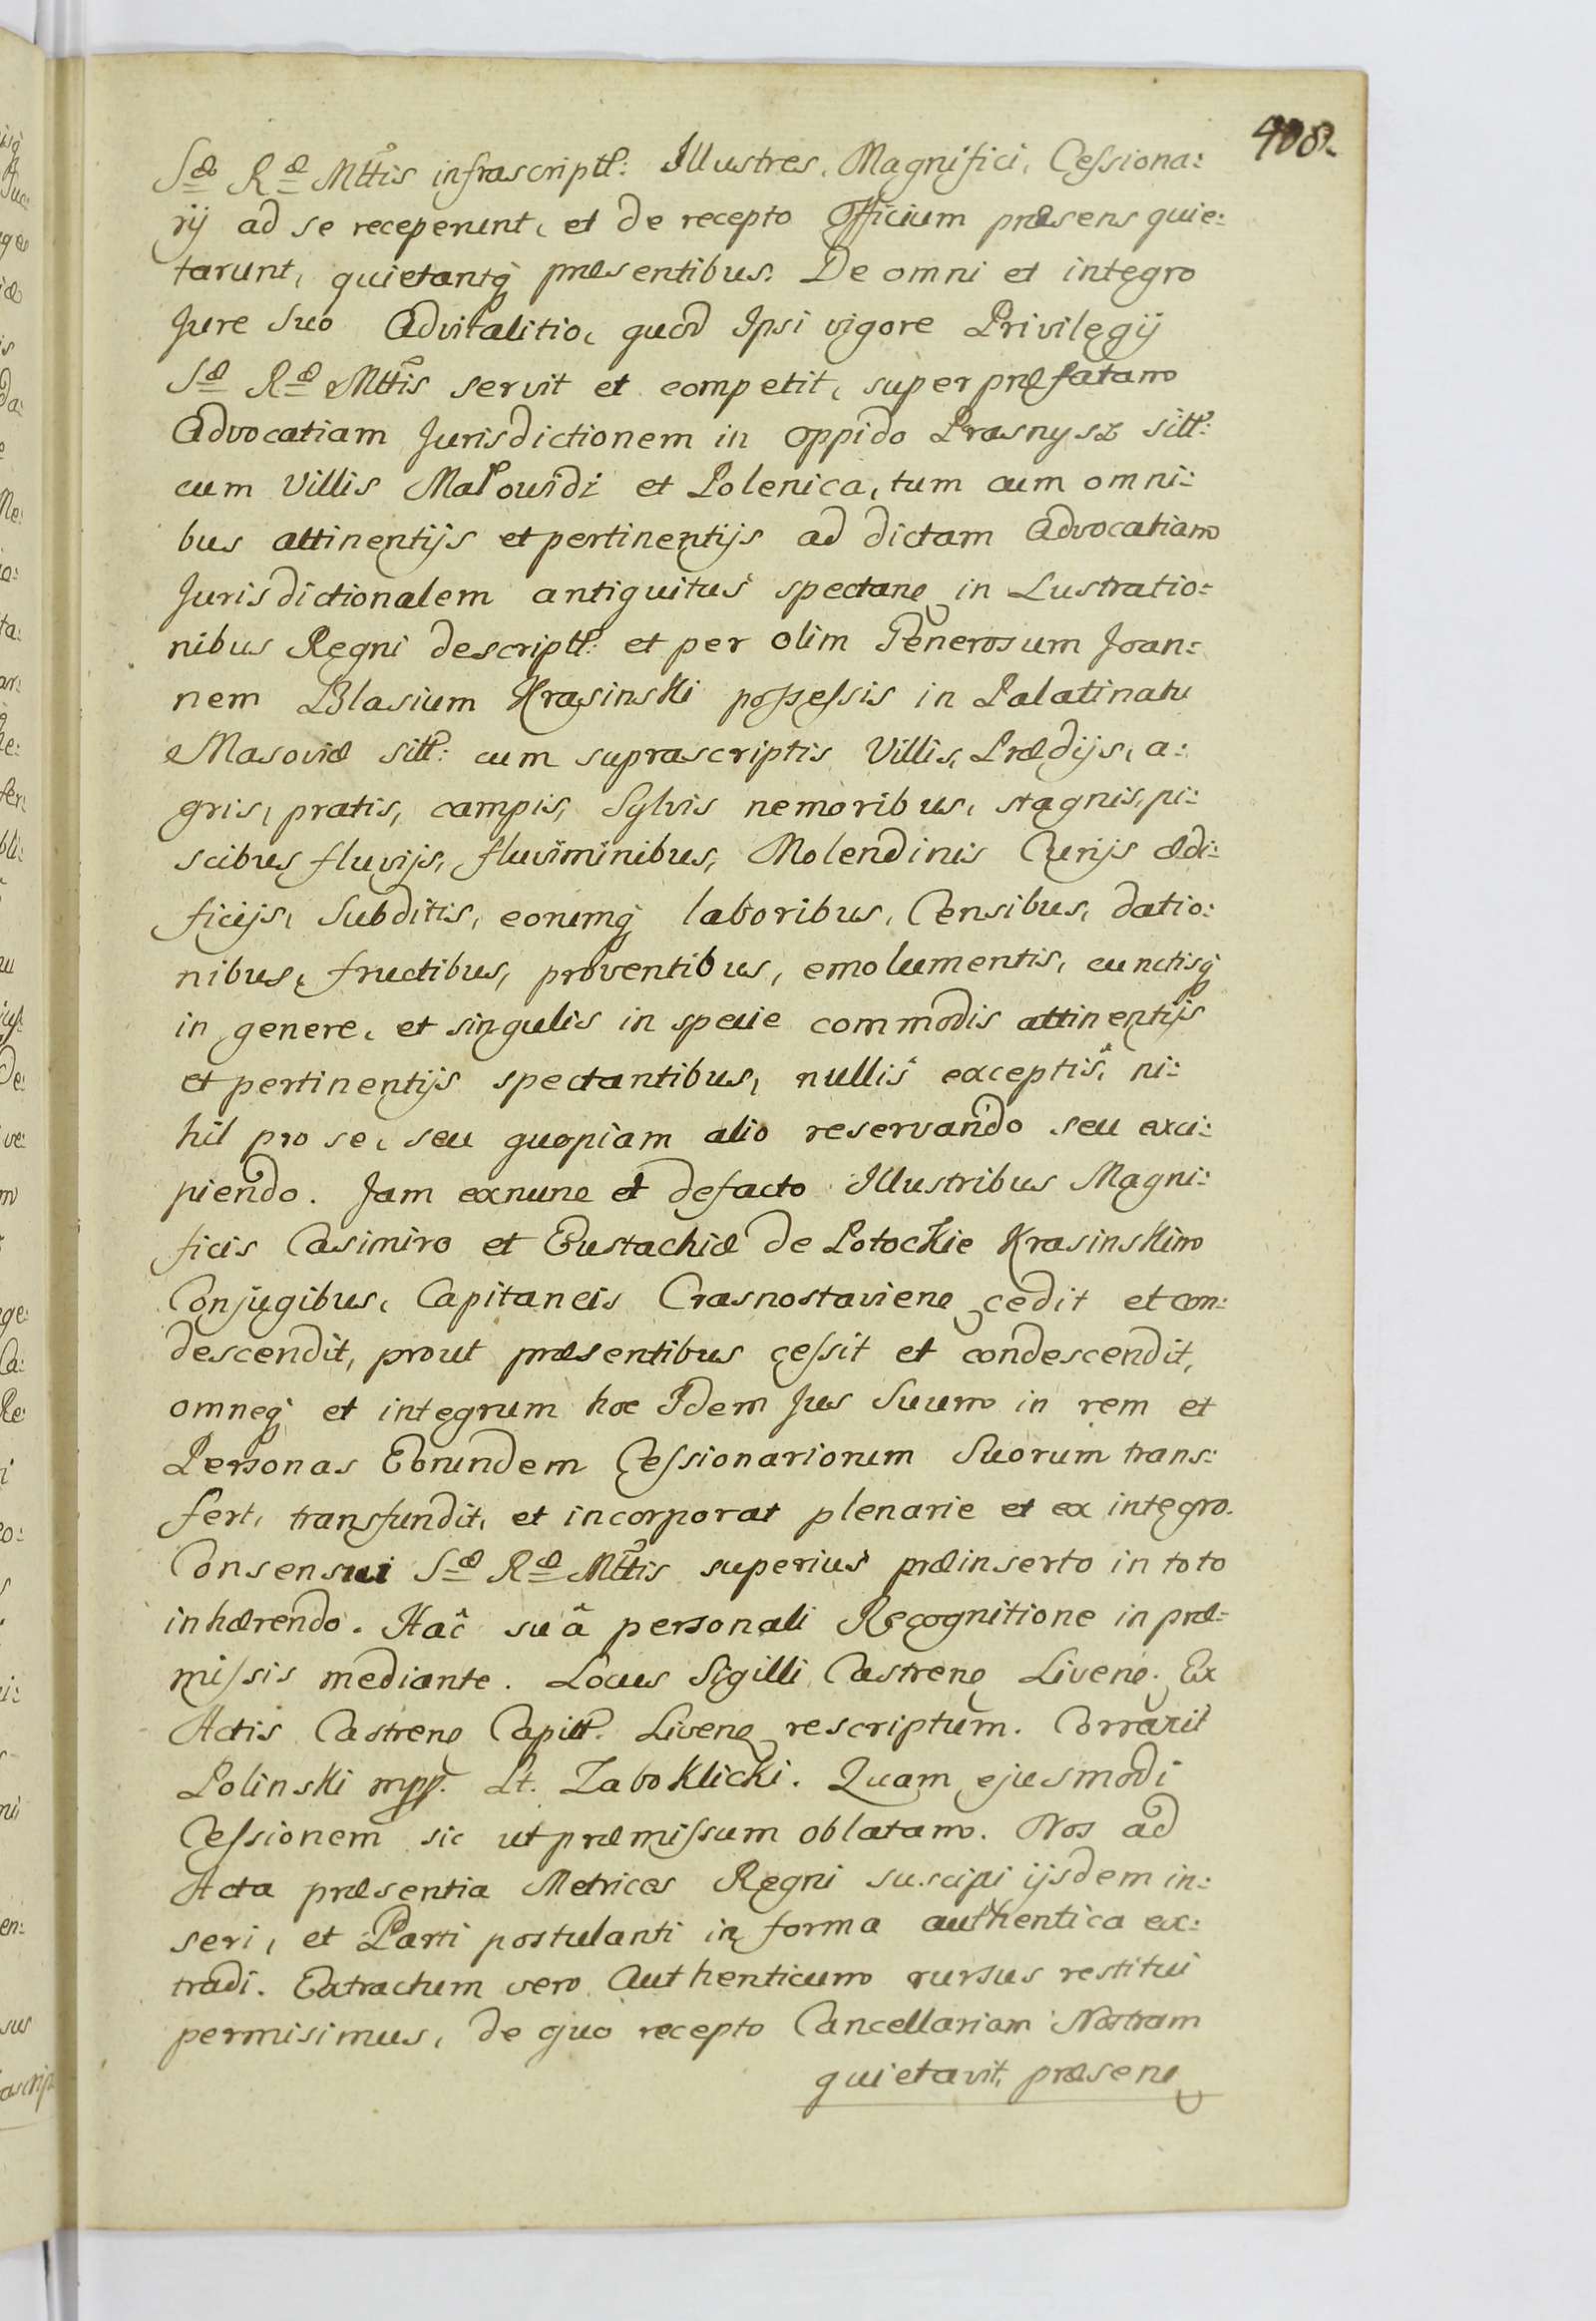 408.
Sæ Ræ Mttis infrascriptt: Illustres, Magnifici, Cessiona:
rij ad se receperunt, et de recepto Officium præsens quie:
tarunt, quietantq præsentibus. De omni et integro
Jure Suo Advitalitio, quod Ipsi vigore Privilegij
Sæ Ræ Mttis servit et competit, super præfatam
Advocatiam Jurisdictionem in Oppido Prasnysz sitt:
cum Villis Małowidz et Polenica, tum cum omni:
bus attinentijs et pertinentijs ad dictam Advocatiam
Jurisdictionalem antiquitus spectan in Lustratio:
nibus Regni descriptt: et per olim Generosum Joan:
nem Blasium Krasinski possessis in Palatinatu
Masoviæ sitt: cum suprascriptis Villis, Prædijs, a:
gris, pratis, campis, Sylvis nemoribus, stagnis, pi:
scibus fluvijs, fluviminibus, Molendinis Curijs ædi:
ficijs, Subditis, eorumq laboribus, Censibus, datio:
nibus, fructibus, proventibus, emolumentis, cunctisq
in genere, et singulis in specie commodis attinentijs
et pertinentijs spectantibus, nullis exceptis, ni:
hil pro se, seu quopiam alio reservando seu exci:
piendo. Jam exnunc et defacto Illustribus Magni:
ficis Casimiro et Eustachiæ de Potockie Krasinskim
Conjugibus, Capitaneis Crasnostavien cedit et con:
descendit, prout præsentibus cessit et condescendit,
omneq et integrum hoc Idem Jus Suum in rem et
Personas Eorundem Cessionariorum Suorum trans:
fert, transfundit, et incorporat plenarie et ex integro.
Consensui Sæ Ræ Mttis superius præinserto in toto
inhærendo. Hac suâ personali Recognitione in præ:
missis mediante. Locus Sigilli Castren Liven. Ex
Actis Castren Capitt. Liven rescriptum. Correxit
Polinski mpp. Lt. Zaboklicki. Quam ejusmodi
Cessionem sic ut præmissum oblatam. Nos ad
Acta præsentia Metrices Regni suscipi ijsdem in:
seri, et Parti postulanti in forma authentica ex:
tradi. Extractum vero Authenticum rursus restitui
permisimus, de quo recepto Cancellariam Nostram
quietavit, præsen